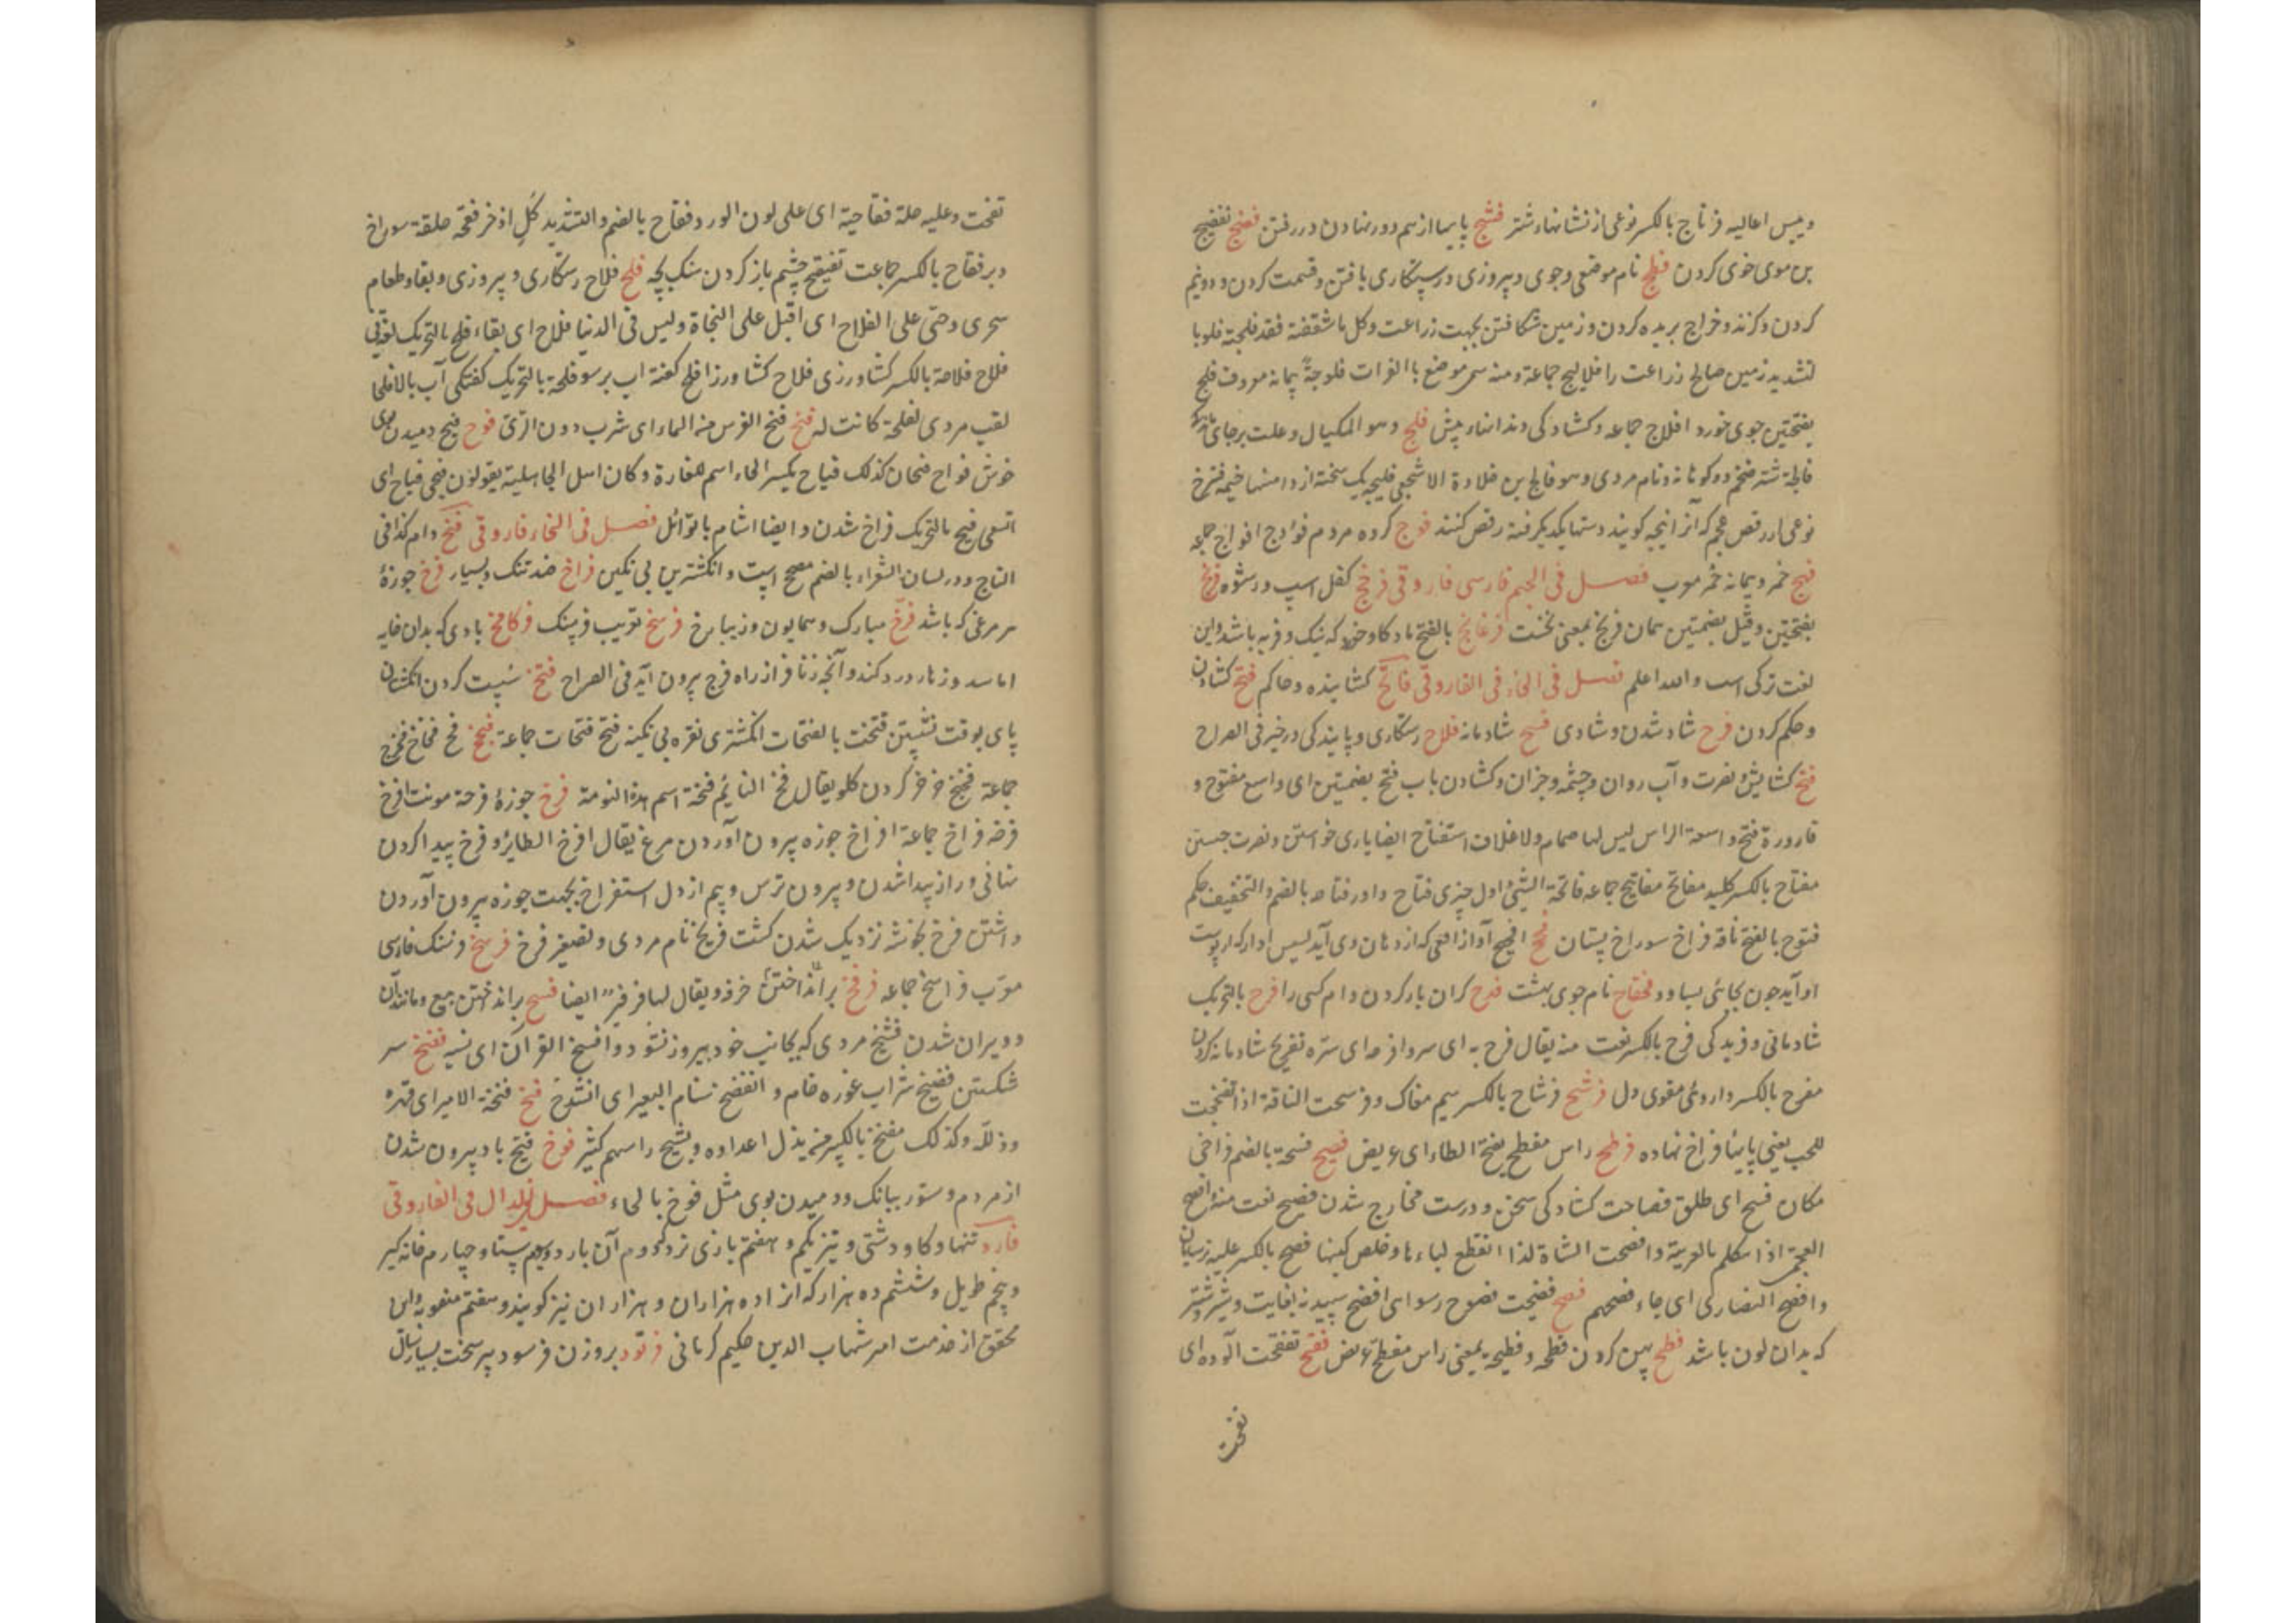 وبیس اعالیه فرتاج بالکسر نوعی از نشانهاء شتر فشج پایها از هم دور نهادن در رفتن فضج تفضیج
بن موی خوی کردن فلج نام موضعی وجوی و پیروزی ورستکاری یافتن وقسمت کردن ودونیم
کردن وکزند وخراج بریده کردن وزمین شکافتن بجهت زراعت وکل ما شققته فقد فلجته فلوجا
تشدید زمین صالح زراعت را فلالیج جماعة ومنه سمی موضع باالفرات فلوجة پیمانه معروف فلج
بفتحتین جوی خورد افلاج جماعه وکشادکی دندانهاء پیش فلج وهو المکیال وعلت برجای
فالجة شتر ضخم دو کوهانه ونام مردی وهو فالج بن خلاوة الاشجعی فلیجه یک تخته از دامنهاء خیمه فنزج
نوعی از رقص عجم که آنرا پنجه کویند دستهاء یکدیکر کرفته رقص کنند فوج کروه مردم فوؤج افواج جماعه
فیج خمر وپیمانه خمر معرب فصل فی الجیم فارسی فاروقی فرخج کفل اسپ ورشوه فرنج
بفتحتین وقیل بضمتین همان فرنج بمعنی نخست فرغانج بالفتح ماده کاو خر که نیک وفربه باشد واین
لغت ترکی است والله اعلم فصل فی الحاء فی الفاروقی فاتح کشاینده وحاکم فتح کشادن
وحکم کردن فرح شاد شدن وشادی فسیح شادمانه فلاح رستکاری وپایندکی در خیر فی الصراح
فتح کشایش ونصرت وآب روان وچشمه وجزان وکشادن باب فتح بضمتین ای واسع مفتوح و
قارورة فتح واسعة الراس لیس لها صمام ولا غلاف استفتاح ایضا یاری خواستن ونصرت جستن
مفتاح بالکسر کلید مفاتح مفاتیح جماعه فاتحة الشیء اول چیزی فتاح داور فتاحه بالضم والتخفیف حکم
فتوح بالفتح ناقه فراخ سوراخ پستان فح افحیح آواز افعی که از دهان وی آید
او آید چون بجائی بساود فخقاح نام جوی بهشت فدح کران بار کردن وام کسی را فرح بالتحریک
شادمانی وفریدکی فرح بالکسر نعت منه یقال فرح به ای سر وافرحه ای سره تفریح شادمانه کردن
مفرح بالکسر داروئی مقوی دل فرشح فرشاح بالکسر سم مفاک وفرشحت الناقة اذا تفحجت
للحب یعنی پایها فراخ نهاده فرطح راس مفطح بفتح الطاء ای عریض فسیح فسحة بالضم فراخی
مکان فسح ای طلق فصاحت کشادکی سخن ودرست مخارج شدن فصیح نعت منه افصح
العجمی اذا تکلم بالعربیة وافصحت الشاة اذا انقطع لباءها وخلص لبنها فصح بالکسر عید ترسایان
وافصح النصاری ای جاء فصحهم فضح فضیحت فضوح رسوای افضح سپید نه بغایت وشیر وشتر
که بدان لون باشد فطح پهن کردن فطحه وفطیحه بمعنی راس مفطح عریض فقح تفقحت الورده ای
تفتحت
تفتحت وعلیه حلة فقاحیة ای علی لون الورد وفقاح بالضم والتشدید کل اذخر فقحه حلقة سوراخ
دبر فقاح بالکسر جماعت تفقیح چشم باز کردن سک بچه فلح فلاح رستکاری وپیروزی وبقا وطعام
سحری وحی علی الفلاح ای اقبل علی النجاة ولیس فی الدنیا فلاح ای بقاء فلح بالتحریک لغة فی
فلاح فلاحة بالکسر کشاورزی فلاح کشاورز افلح کفته لب برسو فلحة بالتحریک کفتکی آب بالا فلحا
لقب مردی لفلحة کانت له فنح فنح الفرس من الماء ای شرب دون الری فوح فیح دمیدن بوی
خوش فواح فیحان کذلک فیاح بکسر الحاء اسم للغارة وکان اهل الجاهلیة یقولون فیحی فیاح ای
اتسعی فیح بالتحریک فراخ شدن وایضا اشام بالوائل فصل فی الخاء فاروقی فخ دام کذا فی
التاج ودر لسان الشعراء بالضم مصحح است وانکشترین بی نکین فراخ ضد تنک وبسیار فرخ جوزهٔ
هر مرغی که باشد فرخ مبارک وهمایون وزیبا رخ فرسخ تعریب فرسنک فرکامخ بادی که بدان خایه
اماسد وزهار درد کند وآنچه زنانرا از راه فرج بیرون آید فی الصراح فتخ سست کردن انکشتان
پای بوقت نشستن فتخت بالفتحات انکشتری نقره بی نکینه فتخ فتخات جماعة فخ فخ فخاخ فخوخ
جماعة فخیخ خرخر کردن کلو یقال فخ النائم فخة اسم هذه النومة فرخ جوزهٔ فرخة مونث افرخ
فرخه فراخ جماعة افراخ جوزه بیرون آوردن مرغ یقال افرخ الطائر وفرخ پیدا کردن
نهانی وراز پیدا شدن وبیرون ترس وبیم از دل استفراخ بجهت جوزه بیرون آوردن
داشتن فرخ بخوشه نزدیک شدن کشت فریخ نام مردی وتصغیر فرخ فرسخ فرسنک فارسی
معرب فراسخ جماعه فرفخ خرفه ویقال لها فرفیر ایضا فسخ برانداختن بیع ومانند آن
وویران شدن فسیخ مردی که بجانب خود پیروز نشود وافسخ القرآن ای نسیه فضخ سر
شکستن فضیخ شراب غوره خام وانفضخ سنام البعیر ای انشدخ فنخ فنخه الامیر ای قهره
وذلله وکذلک مفنخ بالکسر من یذل اعداءه ویشج راسهم کثیر فوخ فیخ باد بیرون شدن
از مردم وستور ببانک ودمیدن بوی مثل فوخ بالحاء فصل الدال فی الفاروقی
فارد تنها وکاو دشتی وتیر یکم وهفتم بازی نرد ودوم آن یاد وسیوم ستا وچهارم خانه کیر
وپنجم طویل وششم ده هزار که انرا ده هزاران وهزاران نیز کویند وهفتم منصوبه واین
محقق از خدمت امیر شهاب الدین حکیم کرمانی فرتود بروزن فرسود پیر سخت بسیار سال